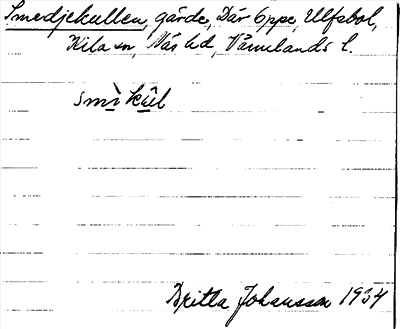 Smedjekullen, gärde, Där Uppe, Ulfsbol,
Kila sn, Näs hd, Värmlands l.
smì kùl
Britta Johansson 1934